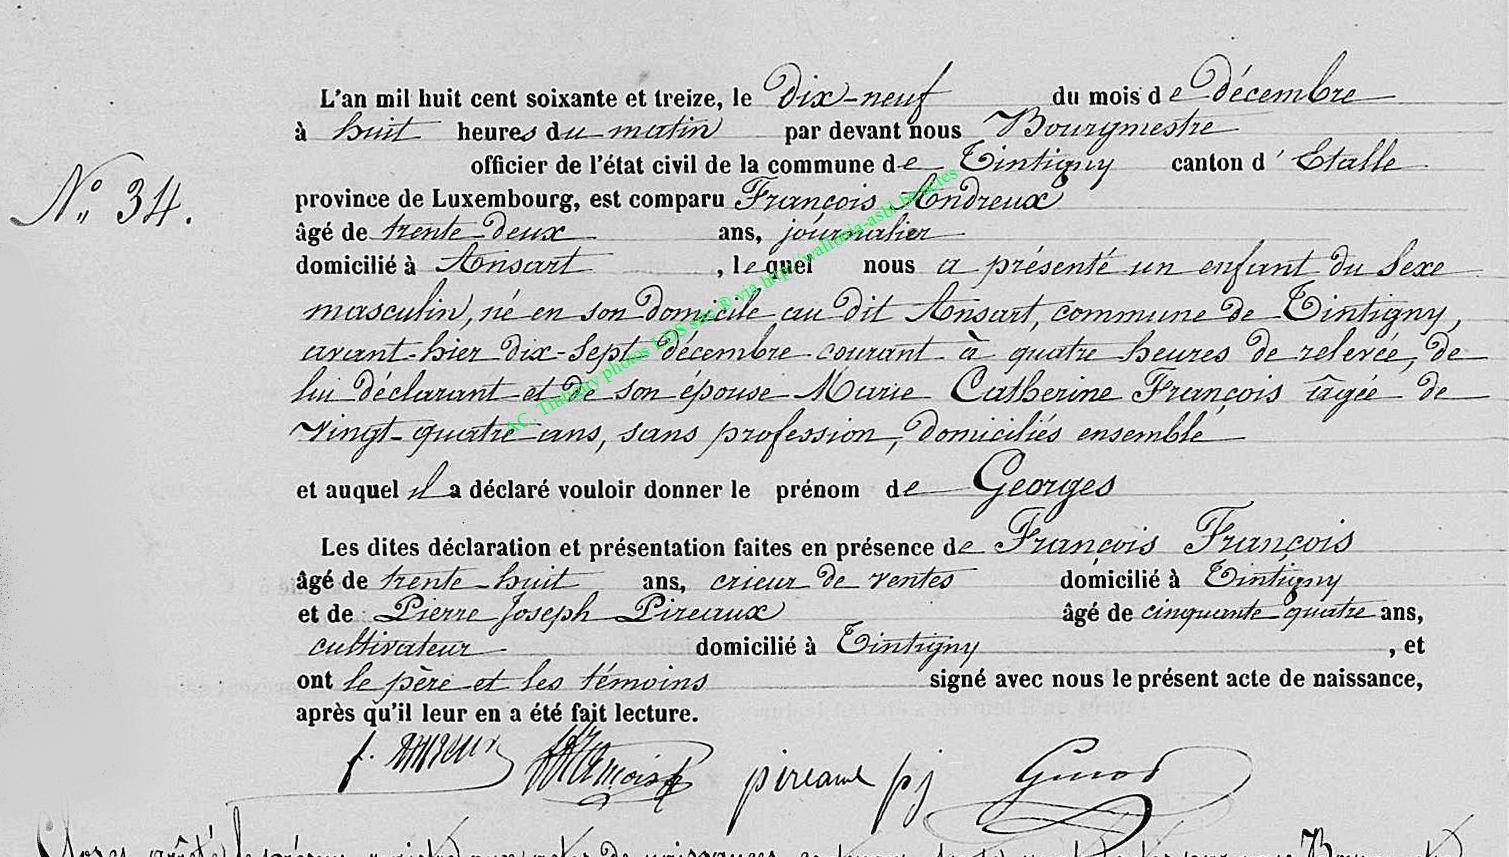 L'an mil huit cent soixante et treize, le Dix-neuf du mois de Décembre
à huit heures du matin par devant nous Bourgmestre
officier de l'état civil de la commune de Tintigny canton d' Etalle
N° 34.
province de Luxembourg, est comparu François Andreux
âgé de trente-deux ans, journalier
domicilié à Ansart, lequel nous a présenté un enfant du Sexe
masculin, né en son domicile au dit Ansart, commune de Tintigny,
avant-hier dix-sept décembre courant à quatre heures de relevée, de
lui déclarant et de son épouse Marie Catherine François âgée de
vingt-quatre ans, sans profession, domiciliés ensemble
et auquel il a déclaré vouloir donner le prénom de Georges
Les dites déclaration et présentation faites en présence de François François
âgé de trente-huit ans, crieur de ventes domicilié à Tintigny
et de Pierre Joseph Pireaux âgé de cinquante quatre ans,
cultivateur domicilié à Tintigny, et
ont le père et les témoins signé avec nous le présent acte de naissance,
après qu'il leur en a été fait lecture.
AC. Tintigny photos LDS sur ® via http://wallonia-asbl.be/actes